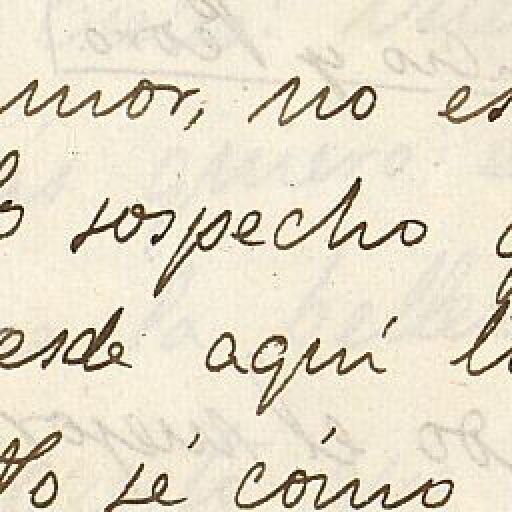 mor, no es
sospecho
esde aquí
No sé cómo